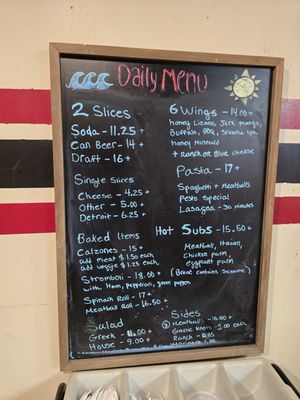 Daily Menu
2 Slices
Soda - 11.25 +
Can Beer - 14 +
Draft - 16 +
Single Slices
Cheese - 4.25 +
Other - 5.00 +
Detroit - 6.25 +
Baked Items
Calzones - 15 +
add meat $1.50 each
add veggie $1.25 each
Stromboli - 18.00 +
with Ham, Pepperoni, green pepper
Spinach Roll - 17 +
Meatball Roll - 16.50 +
Salad
Greek - 11.00 +
House - 9.00 +
6 Wings - 14.00 +
honey Lizano, Jerk mango,
Buffalo, BBQ, Sriracha
honey Mustard
+ ranch or Blue cheese
Pasta - 17 +
Spaghetti + Meatballs
Pesto Special
Lasagna - 30 minutes
Hot Subs - 15.50 +
Meatball, Italian,
Chicken parm,
eggplant parm
(Bread contains sesame)
Sides
Meatballs - 10.00 +
Garlic knots 1.00 each
Ranch -
Marinara 1.00